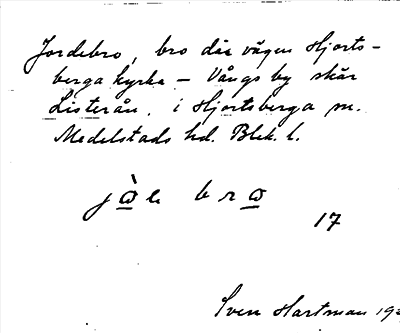 Jordebro, bro där vägen Hjorts-
berga kyrka – Vångs by skär
Listerån. i Hjortsberga sn.
Medelstads hd. Blek. l.
jὼ̲e brω̲
17
Sven Hartman 19